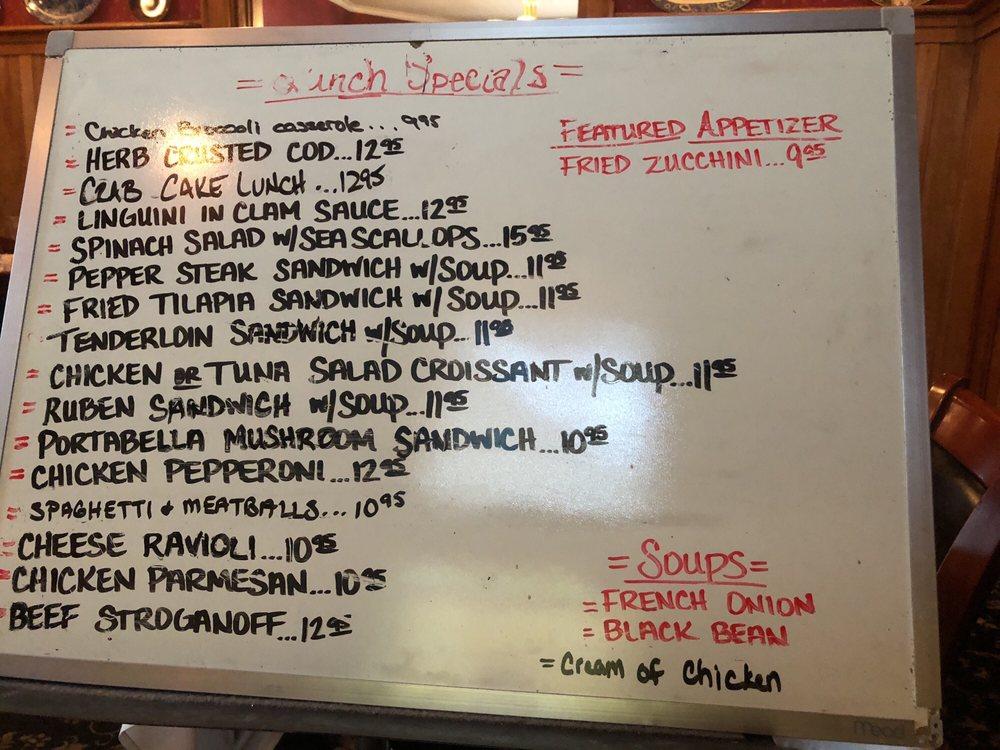 = Lunch Specials =
= Chicken Broccoli casserole... 9.95
= HERB CRUSTED COD...12 95
= CRAB CAKE LUNCH ...12 95
= LINGUINI IN CLAM SAUCE...12 95
= SPINACH SALAD W/SEA SCALLOPS...15 95
= PEPPER STEAK SANDWICH W/SOUP...11 95
= FRIED TILAPIA SANDWICH W/SOUP...11 95
TENDERLOIN SANDWICH W/SOUP...11 95
= CHICKEN OR TUNA SALAD CROISSANT W/SOUP...11 95
= RUBEN SANDWICH W/SOUP...11 95
= PORTABELLA MUSHROOM SANDWICH...10 95
= CHICKEN PEPPERONI...12 95
= SPAGHETTI & MEATBALLS...10 95
= CHEESE RAVIOLI...10 95
= CHICKEN PARMESAN...10 95
BEEF STROGANOFF...12 95
FEATURED APPETIZER
FRIED ZUCCHINI...9 95
= SOUPS =
= FRENCH ONION
= BLACK BEAN
= Cream of Chicken
Mead